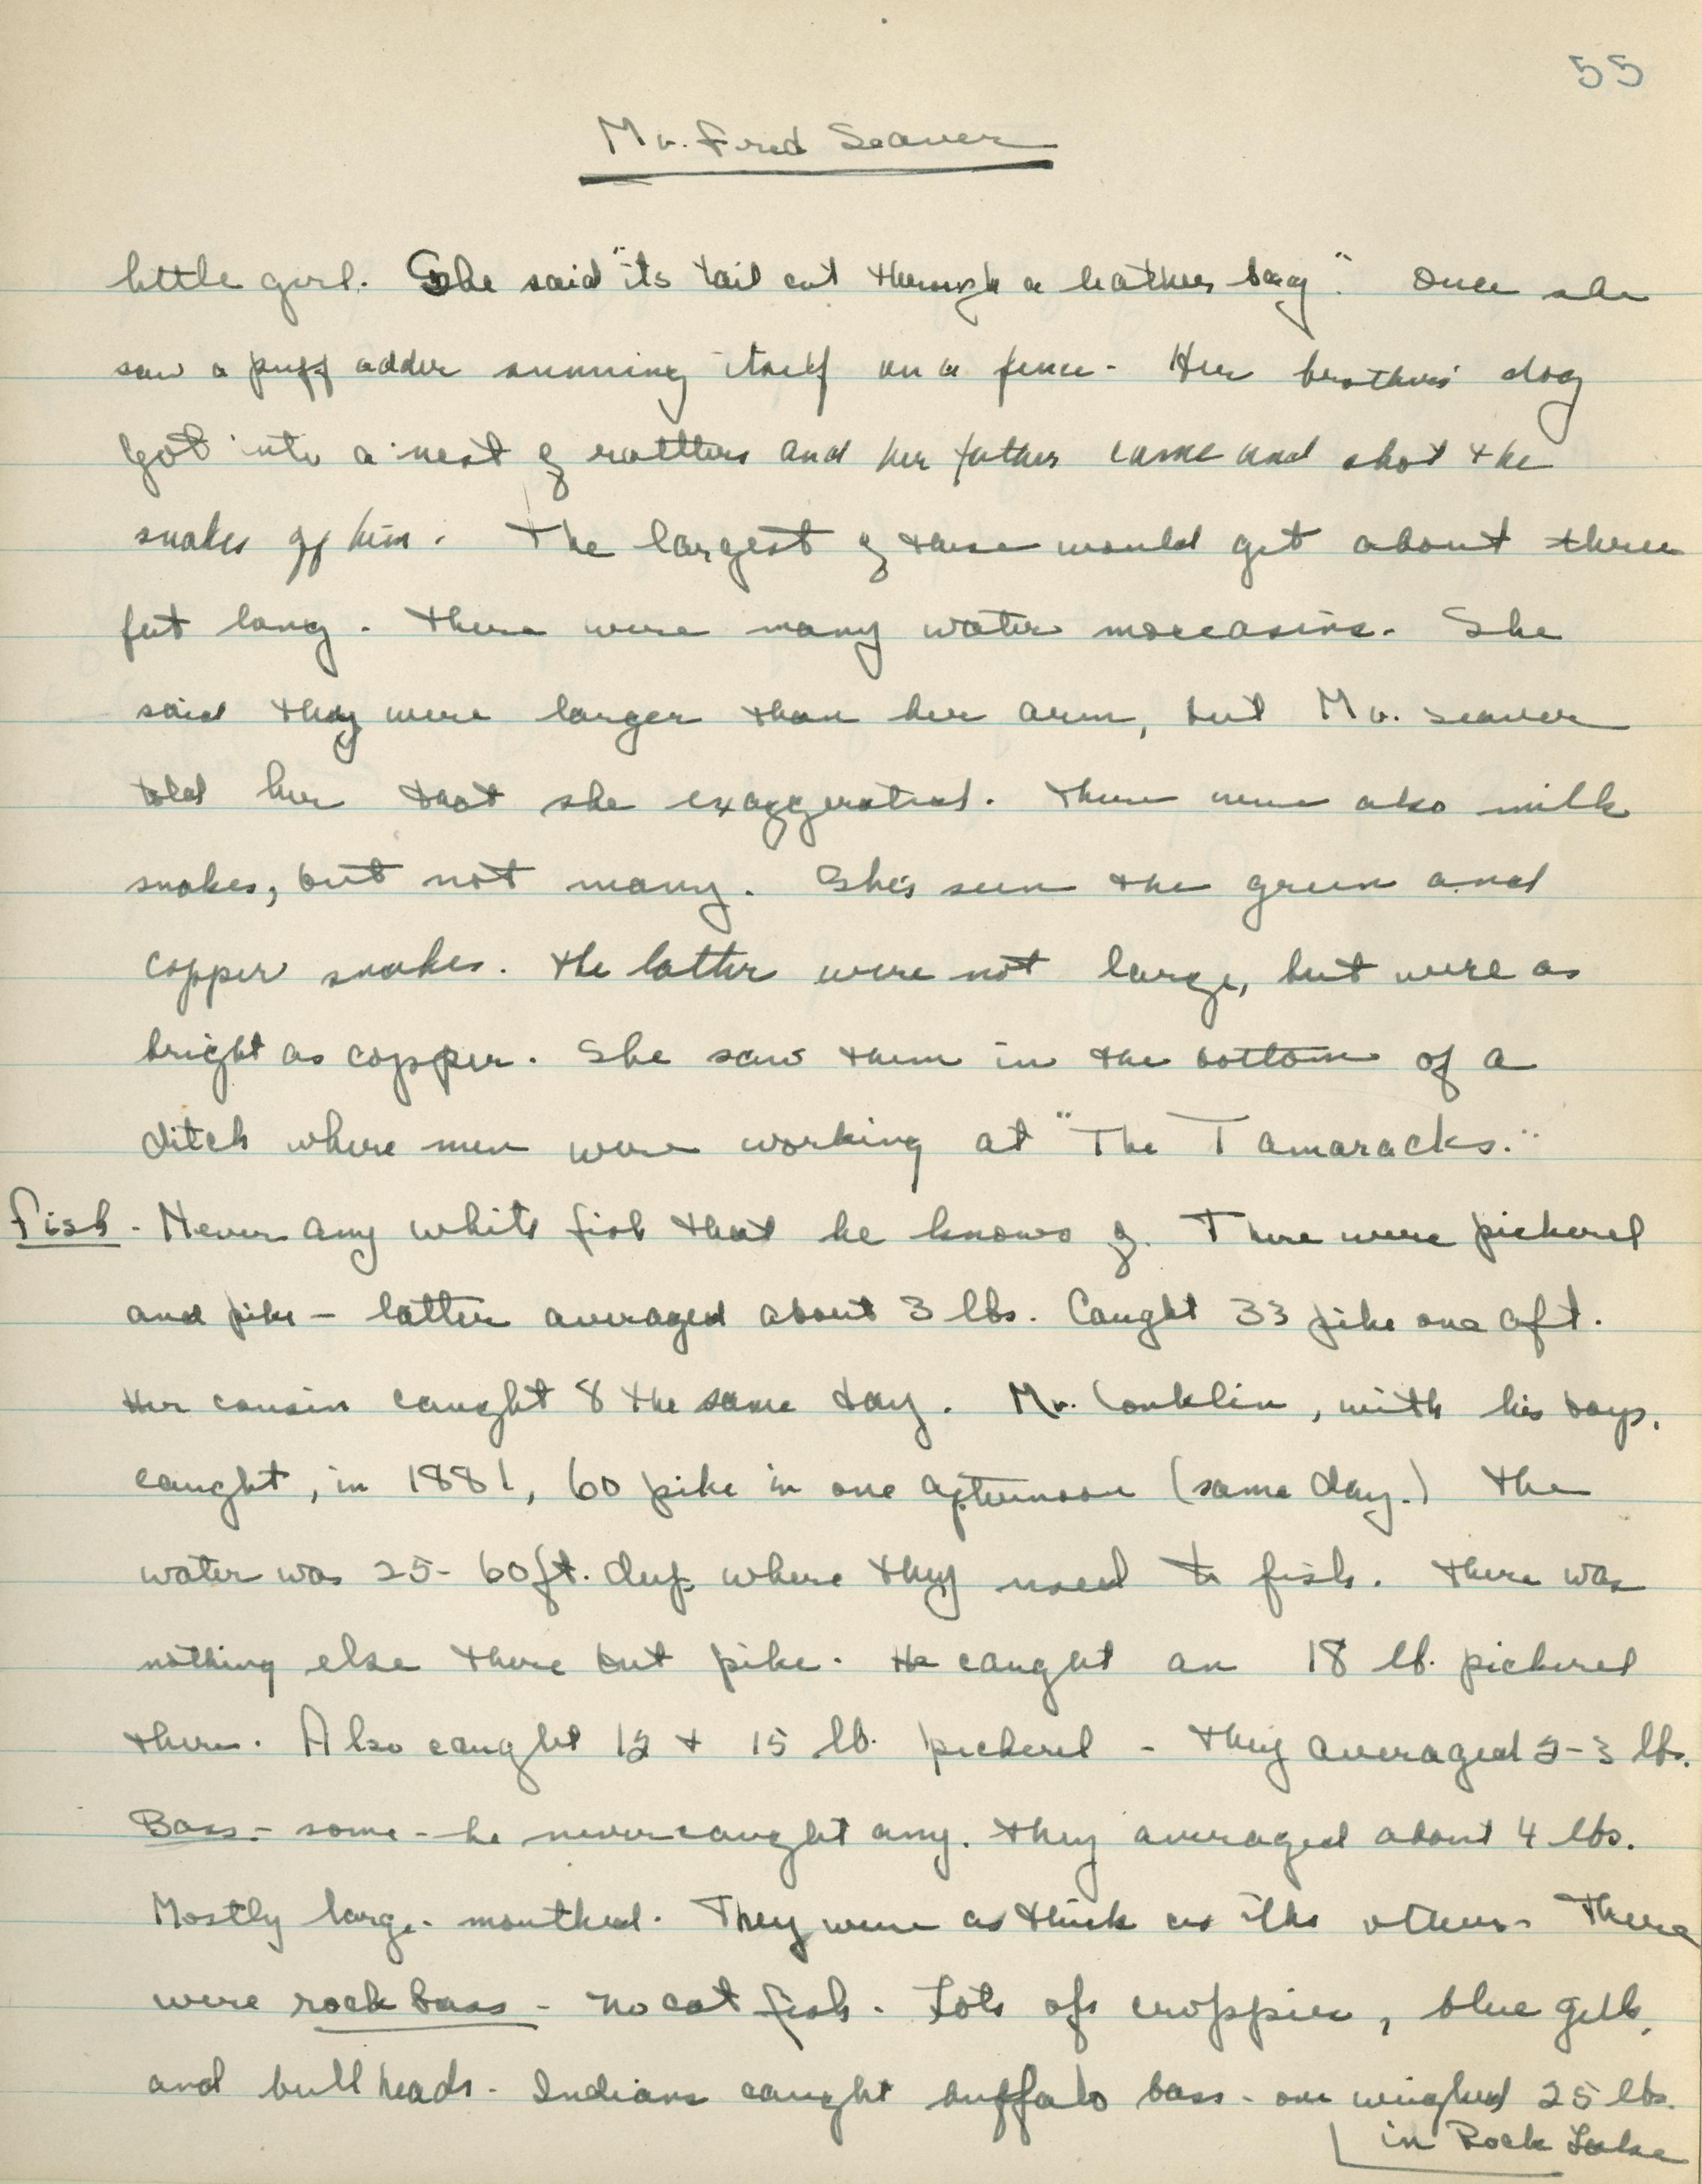 55
Mr. Fred Seaver
little girl. She said "its tail cut through a leather bag." Once she
saw a puff adder sunning itself on a fence. Her brothers' dog
got into a nest of rattlers and her father came and shot the
snakes off him. The largest of these would get about three
feet long. There were many water moccasins. She
said they were larger than her arm, but Mr. Seaver
told her that she exaggerated. There were also milk
snakes, but not many. She's seen the green and
copper snakes. The latter were not large, but were as
bright as copper. She saw them in the bottom of a
ditch where men were working at "The Tamaracks."
Fish - Never any white fish that he knows of. There were pickerel
and pike - latter averaged about 3 lbs. Caught 33 pike one aft.
Her cousin caught 8 the same day. Mr. Conklin, with his boys,
caught, in 1881, 60 pike in one afternoon (same day.) The
water was 25-60 ft. deep where they used to fish. There was
nothing else there but pike. He caught an 18 lb. pickerel
there. Also caught 12 + 15 lb. pickerel - they averaged 2-3 lbs.
Bass - some - he never caught any. They averaged about 4 lbs.
Mostly large-mouthed. They were as thick as the others. There
were rock bass - no cat fish. Lots of croppies, blue gills,
and bull heads. Indians caught buffalo bass - one weighed 25 lbs.
in Rock Lake